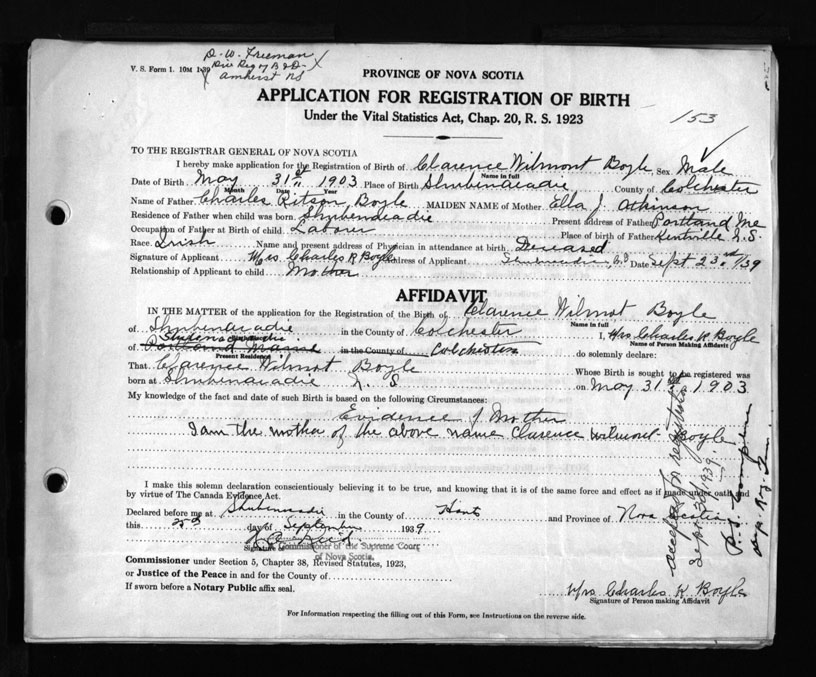 D. W. Freeman
Div Reg of B & D
Amherst NS
V. S. Form 1. 10M 1-39
PROVINCE OF NOVA SCOTIA
APPLICATION FOR REGISTRATION OF BIRTH
Under the Vital Statistics Act, Chap. 20, R. S. 1923
153
TO THE REGISTRAR GENERAL OF NOVA SCOTIA
I hereby make application for the Registration of Birth of Clarence Wilmont Boyle Sex Male
Name in full
Date of Birth May 31st 1903 Place of Birth Shubenacadie County of Colchester
Month Date Year
Name of Father Charles Ritson Boyle MAIDEN NAME of Mother Ella J. Atkinson
Residence of Father when child was born Shubenacadie Present address of Father Portland Me
Occupation of Father at Birth of child Labourer Place of birth of Father Kentville N.S.
Race Irish Name and present address of Physician in attendance at birth Deceased
Signature of Applicant Mrs Charles R Boyle Address of Applicant Shubenacadie, N.S Date Sept 23rd/39
Relationship of Applicant to child Mother
AFFIDAVIT
IN THE MATTER of the application for the Registration of the Birth of Clarence Wilmot Boyle
Name in full
of Shubenacadie in the County of Colchester I, Mrs Charles R. Boyle
Name of Person Making Affidavit
Shubenacadie
of Portland Maine in the County of Colchester do solemnly declare:
Present Residence
That Clarence Wilmot Boyle Whose Birth is sought to be registered was
born at Shubenacadie N. S on May 31st 1903
My knowledge of the fact and date of such Birth is based on the following Circumstances:
Evidence of Mother
I am the mother of the above name Clarence Wilmont Boyle
I make this solemn declaration conscientiously believing it to be true, and knowing that it is of the same force and effect as if made under oath and
by virtue of The Canada Evidence Act.
Declared before me at Shubenacadie in the County of Hants and Province of Nova Scotia
this 23 day of September 1939
Signature Commissioner of the Supreme Court
of Nova Scotia.
Commissioner under Section 5, Chapter 38, Revised Statutes, 1923,
or Justice of the Peace in and for the County of
If sworn before a Notary Public affix seal.
Mrs Charles R Boyle
Signature of Person making Affidavit
For Information respecting the filling out of this Form, see Instructions on the reverse side.
accepted for registration
Sept 30 1939